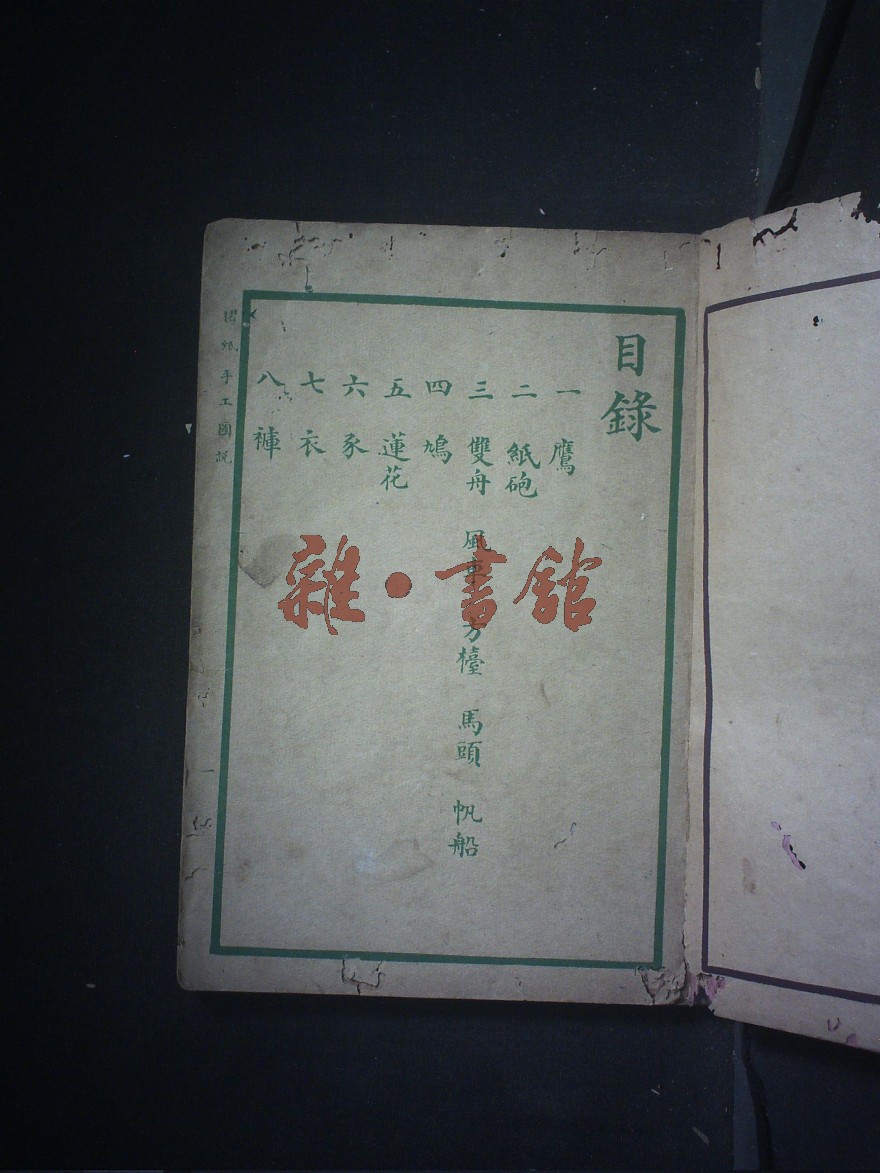 目錄
一 鷹
二 紙砲
三 雙舟 風車 方檯 馬頭 帆船
四 鳩
五 蓮花
六 豕
七 衣
八 褲
摺紙手工圖說
一
雜·書館